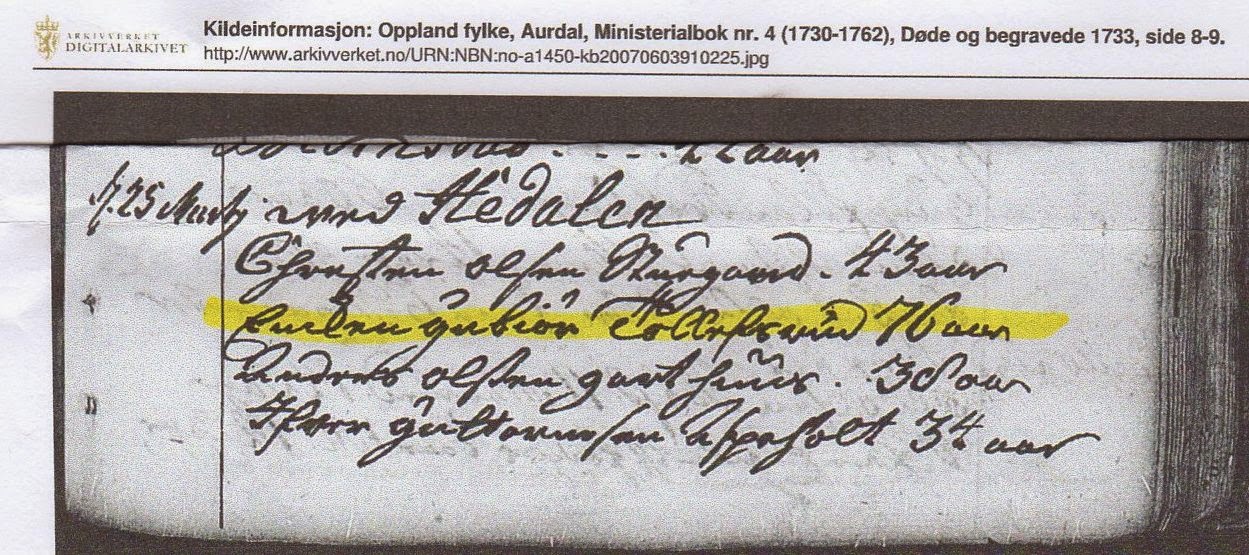 ARKIVVERKET
DIGITALARKIVET
Kildeinformasjon: Oppland fylke, Aurdal, Ministerialbok nr. 4 (1730-1762), Døde og begravede 1733, side 8-9.
http://www.arkivverket.no/URN:NBN:no-a1450-kb20070603910225.jpg
aar
d. 25 Martij ved Hedalen
Christen olsen 43 aar
Encken gubiør Tollefsrud 76 aar
Anders olsen garthuus. 38 aar
Ifver guttormsen Aspeholt 34 aar